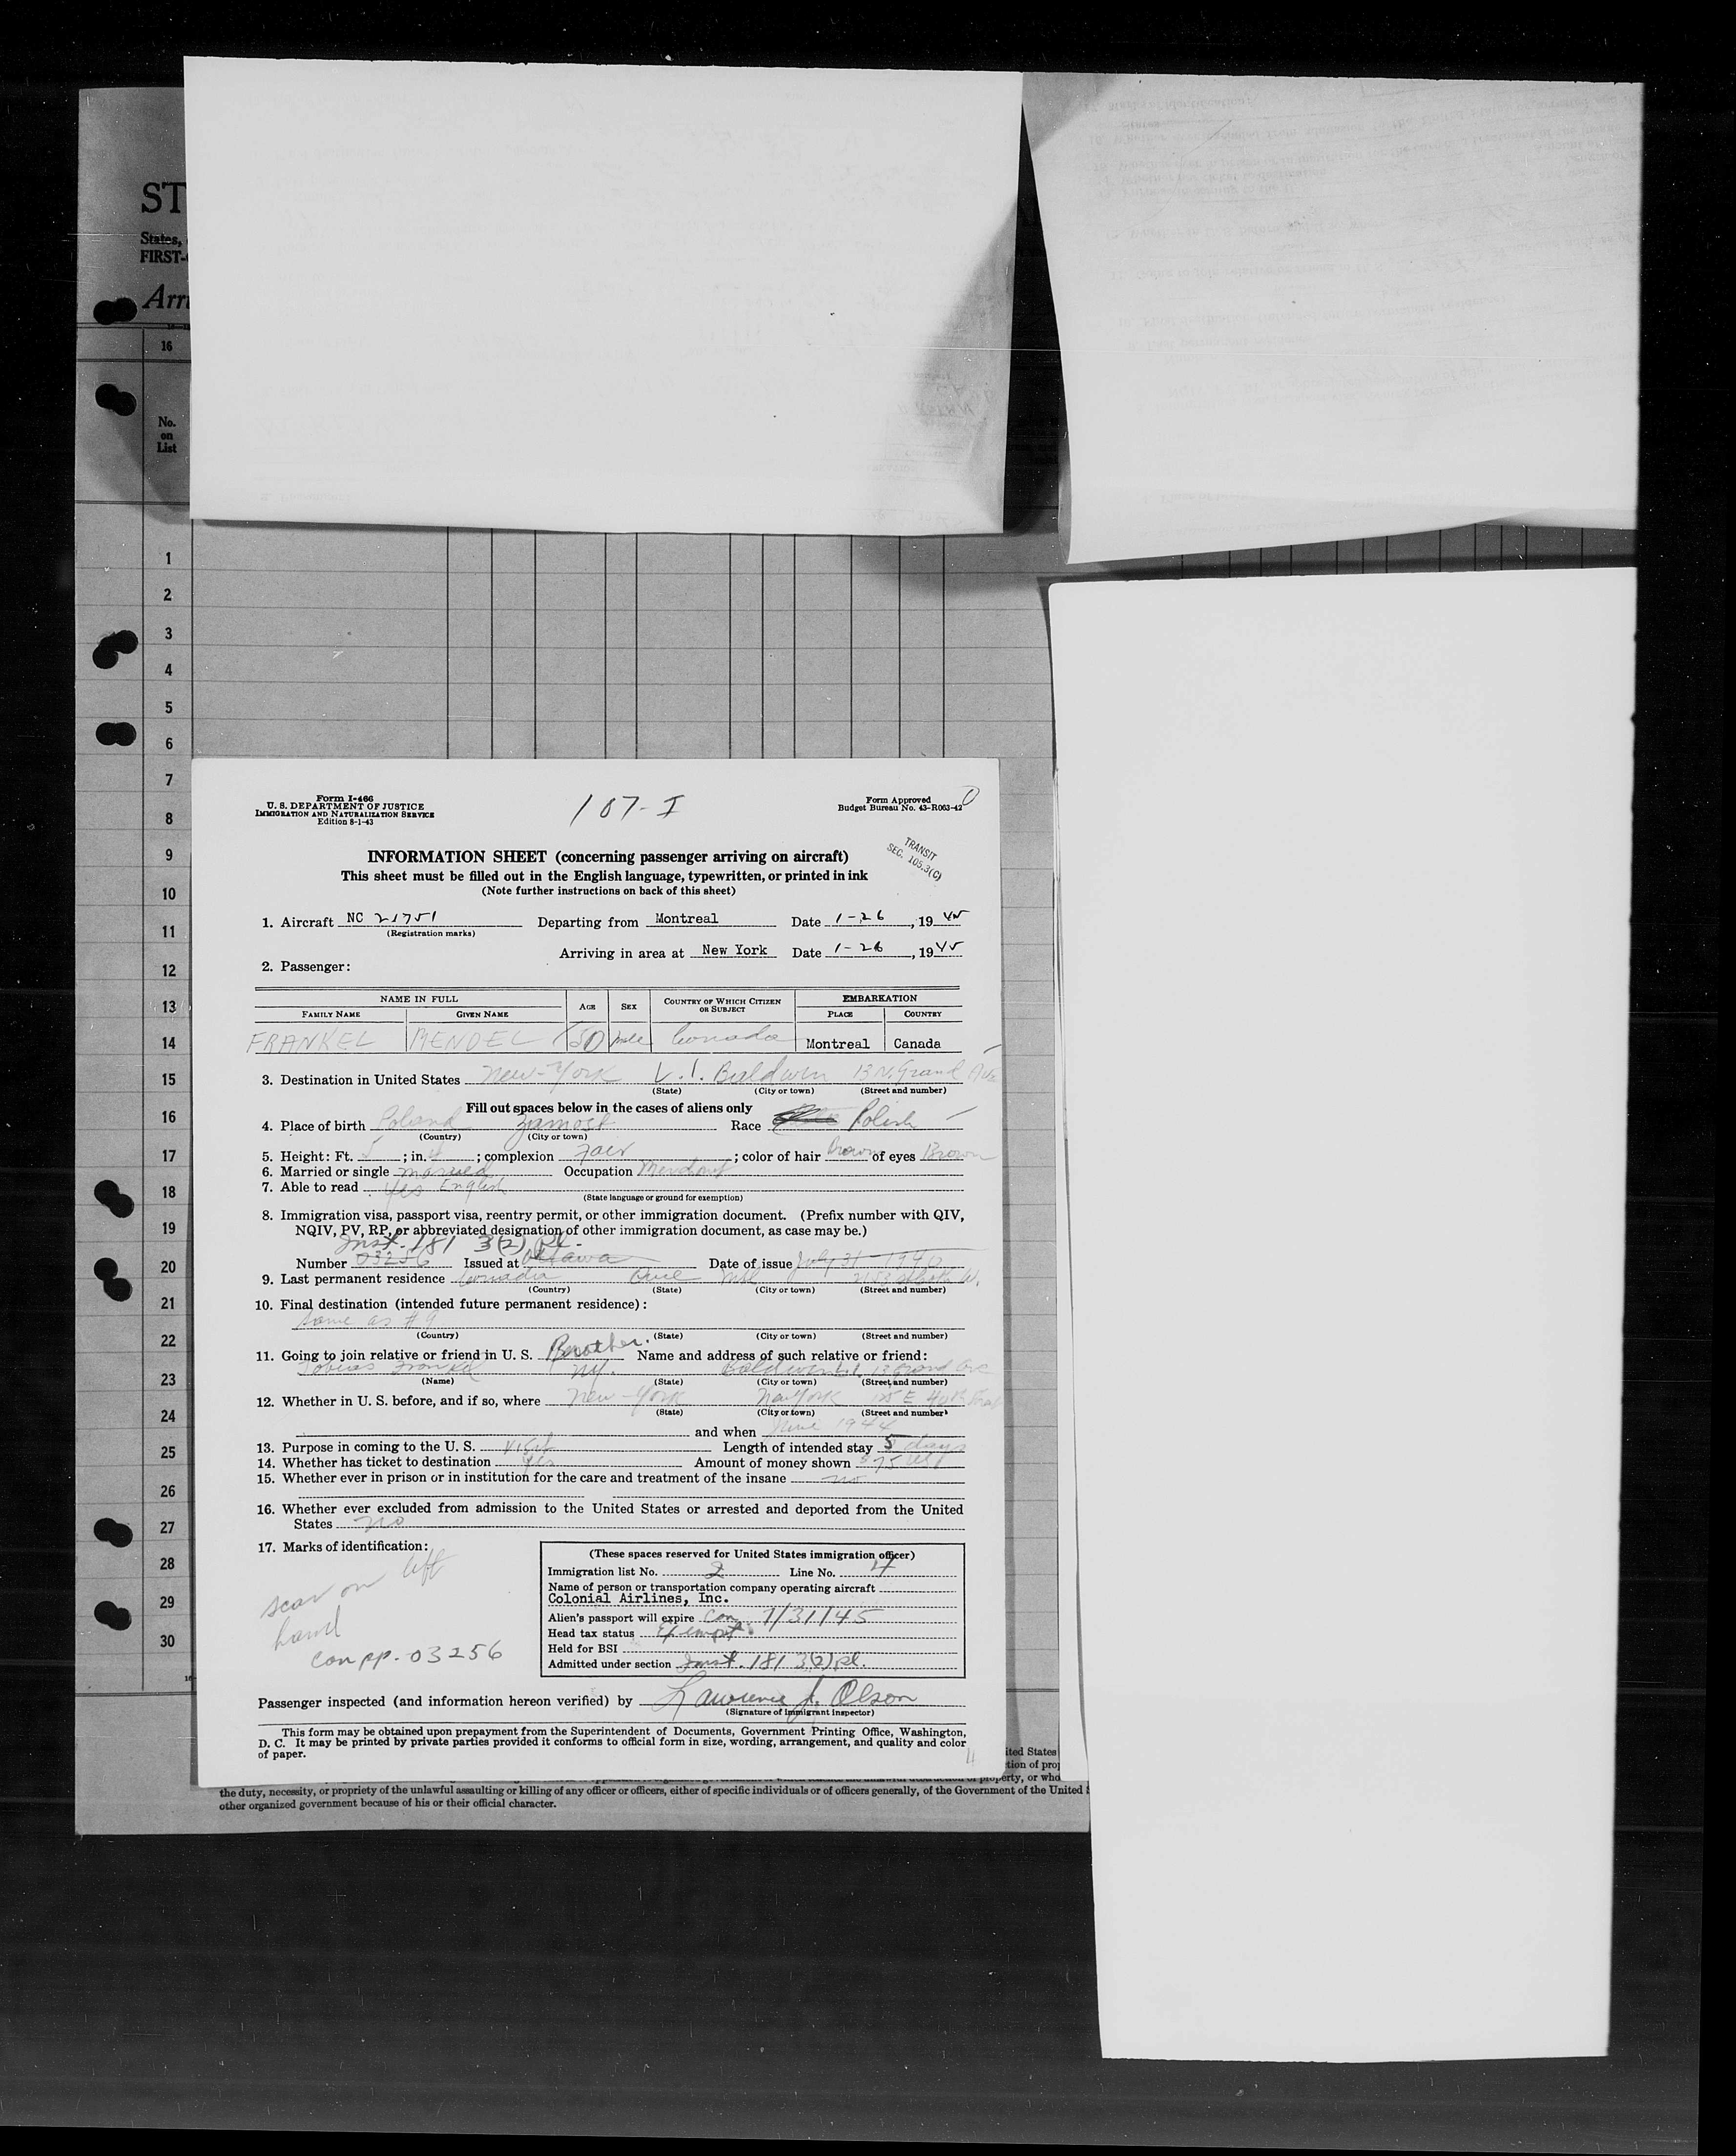 ST
States,
FIRST-
Arri
16
No.
on
List
1
2
3
4
5
6
7
8
9
10
11
12
13
14
15
16
17
18
19
20
21
22
23
24
25
26
27
28
29
30
Form I-466
U. S. DEPARTMENT OF JUSTICE
IMMIGRATION AND NATURALIZATION SERVICE
Edition 8-1-43
107-I
Form Approved
Budget Bureau No. 43-R063-42
TRANSIT
SEC. 105.3(C)
INFORMATION SHEET (concerning passenger arriving on aircraft)
This sheet must be filled out in the English language, typewritten, or printed in ink
(Note further instructions on back of this sheet)
1. Aircraft NC 21751 Departing from Montreal Date 1-26, 1945
(Registration marks)
Arriving in area at New York Date 1-26, 1945
2. Passenger:
NAME IN FULL AGE SEX COUNTRY OF WHICH CITIZEN OR SUBJECT EMBARKATION
FAMILY NAME GIVEN NAME PLACE COUNTRY
FRANKEL MENDEL 50 male Canada Montreal Canada
3. Destination in United States New-York L.I. Baldwin 13 N. Grand Ave
(State) (City or town) (Street and number)
Fill out spaces below in the cases of aliens only
4. Place of birth Poland Zamost Race Polish
(Country) (City or town)
5. Height: Ft. 5; in. 4; complexion Fair; color of hair Brown of eyes Brown
6. Married or single married Occupation
7. Able to read Yes English
(State language or ground for exemption)
8. Immigration visa, passport visa, reentry permit, or other immigration document. (Prefix number with QIV,
NQIV, PV, RP, or abbreviated designation of other immigration document, as case may be.)
Inst. 181 3(2) Pl.
Number 03256 Issued at Ottawa Date of issue July 31-1940
9. Last permanent residence Canada Que Mtl
(Country) (State) (City or town) (Street and number)
10. Final destination (intended future permanent residence):
same as #9
(Country) (State) (City or town) (Street and number)
11. Going to join relative or friend in U. S. Brother. Name and address of such relative or friend:
Tobias Frankel NY. Baldwin L.I. 13 Grand Ave
(Name) (State) (City or town) (Street and number)
12. Whether in U. S. before, and if so, where New-York New York
(State) (City or town) (Street and number)
and when June 1944
13. Purpose in coming to the U. S. Visit Length of intended stay 5 days
14. Whether has ticket to destination Yes Amount of money shown $75
15. Whether ever in prison or in institution for the care and treatment of the insane no
16. Whether ever excluded from admission to the United States or arrested and deported from the United
States no
17. Marks of identification:
scar on left
hand
Can pp. 03256
(These spaces reserved for United States immigration officer)
Immigration list No. 2 Line No. 4
Name of person or transportation company operating aircraft
Colonial Airlines, Inc.
Alien's passport will expire Can. 7/31/45
Head tax status Exempt.
Held for BSI
Admitted under section Inst. 181 3(2) pl.
Passenger inspected (and information hereon verified) by Lawrence J. Olson
(Signature of immigrant inspector)
This form may be obtained upon prepayment from the Superintendent of Documents, Government Printing Office, Washington,
D. C. It may be printed by private parties provided it conforms to official form in size, wording, arrangement, and quality and color
of paper.
ited States
tion of prop
property, or who
the duty, necessity, or propriety of the unlawful assaulting or killing of any officer or officers, either of specific individuals or of officers generally, of the Government of the United S
other organized government because of his or their official character.